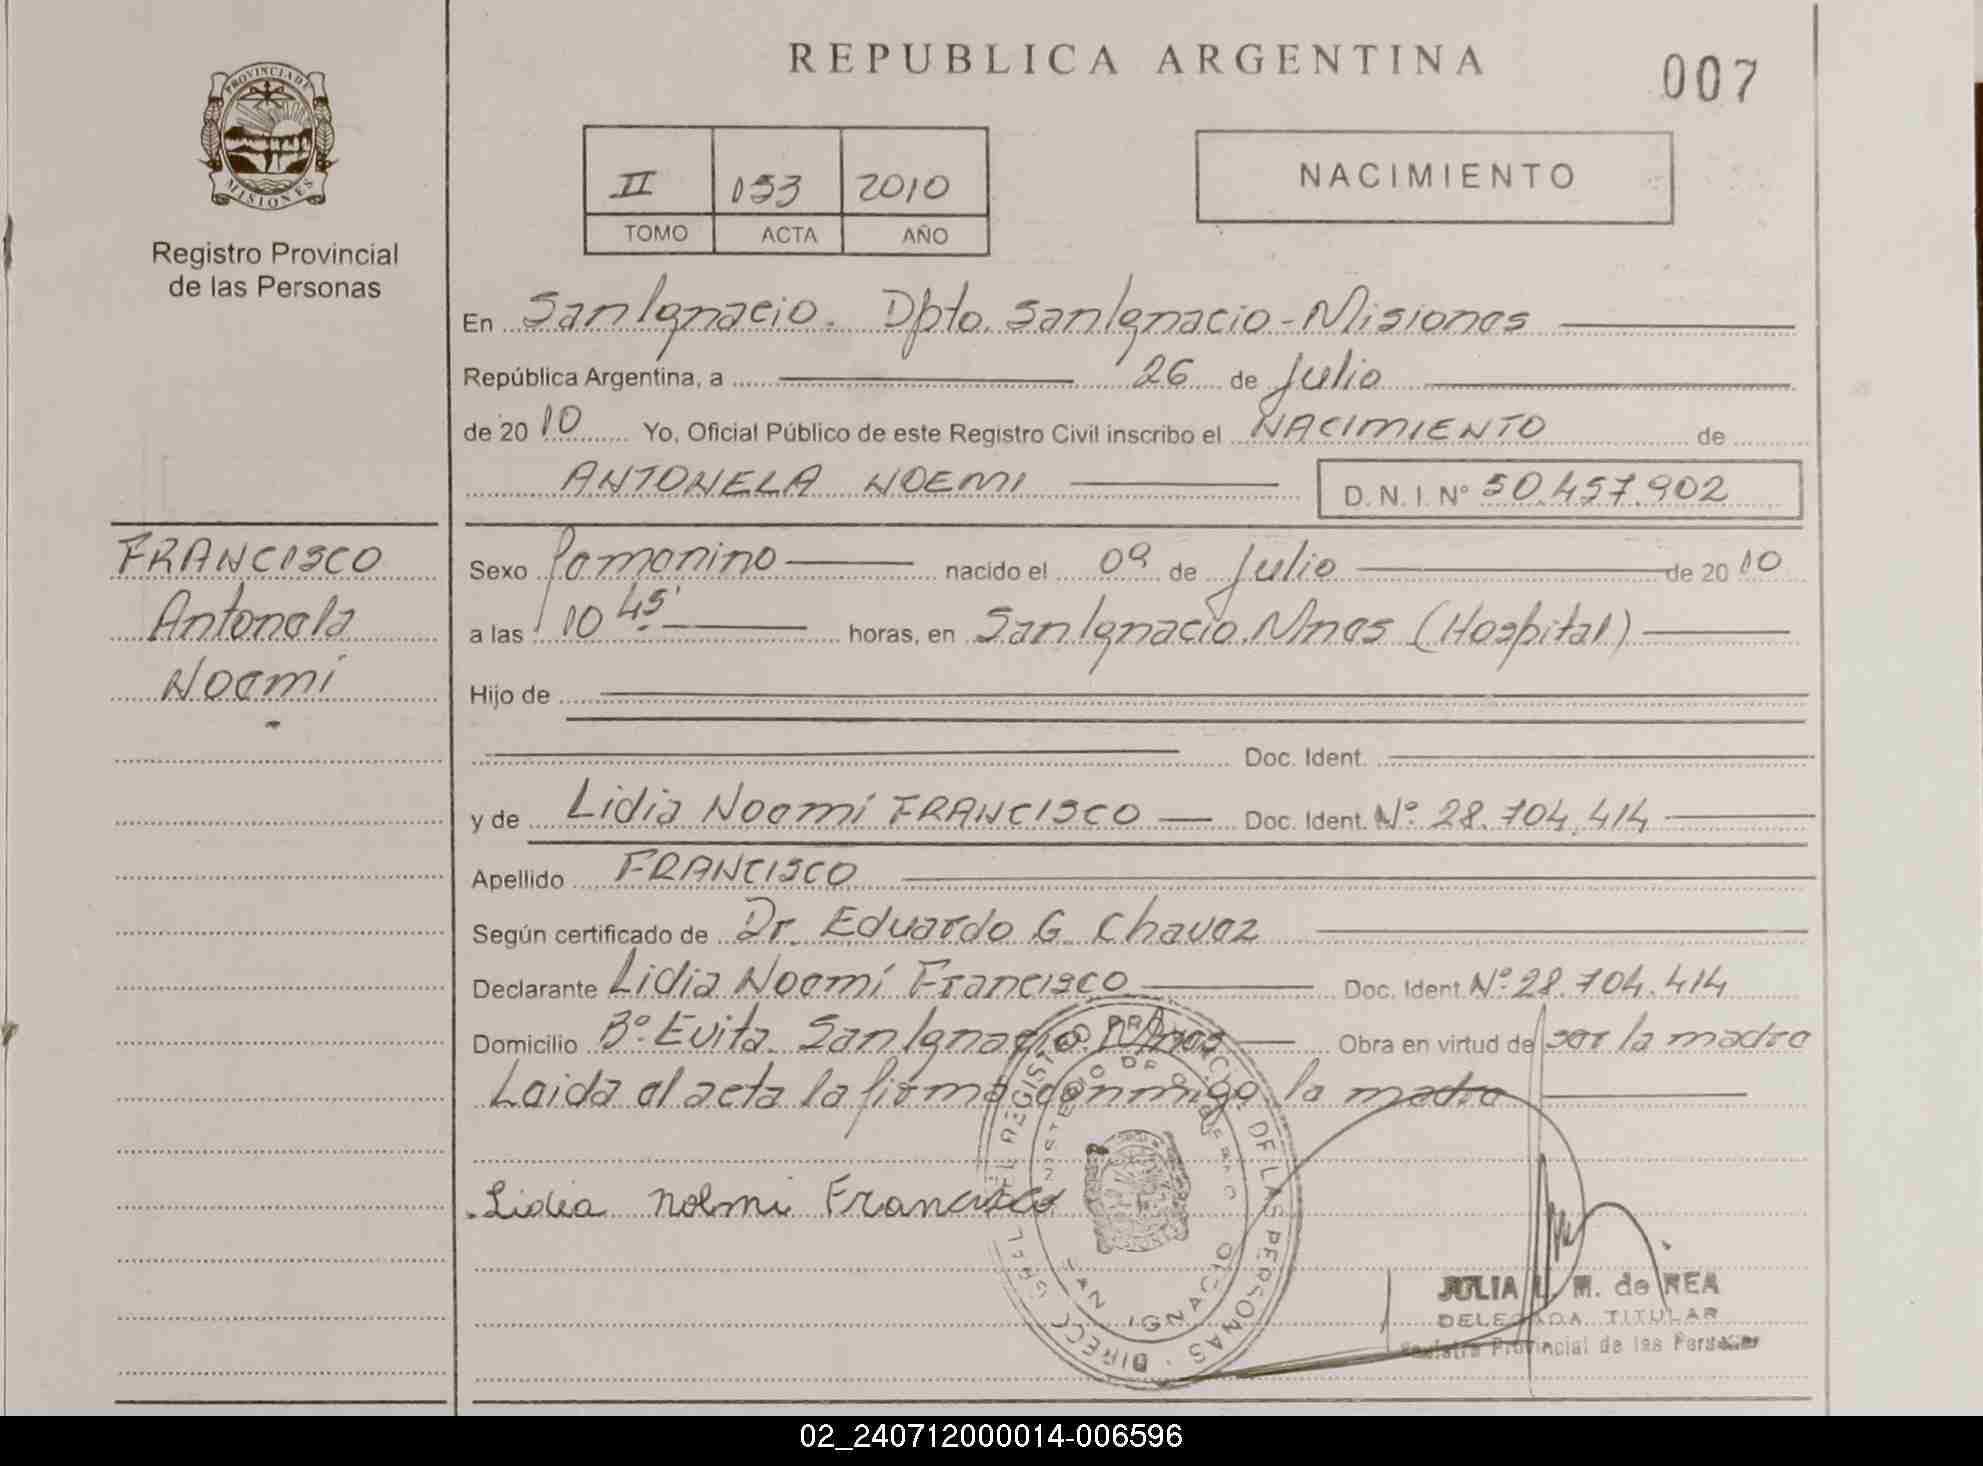 REPUBLICA ARGENTINA
007
PROVINCIA DE
MISIONES
Registro Provincial
de las Personas
II 053 2010
TOMO ACTA AÑO
NACIMIENTO
En San Ignacio. Dpto. San Ignacio - Misiones
República Argentina, a 26 de Julio
de 2010 Yo, Oficial Público de este Registro Civil inscribo el NACIMIENTO de
ANTONELA NOEMI D.N.I. Nº 50.457.902
FRANCISCO
Antonela
Noemí
Sexo Femenino nacido el 09 de Julio de 2010
a las 10 45' horas, en San Ignacio. Mnes (Hospital)
Hijo de
Doc. Ident.
y de Lidia Noemí FRANCISCO Doc. Ident. Nº 28.704.414
Apellido FRANCISCO
Según certificado de Dr. Eduardo G. Chavez
Declarante Lidia Noemí Francisco Doc. Ident. Nº 28.704.414
Domicilio Bº Evita. San Ignacio. Mnes Obra en virtud de ser la madre
Leida el acta la firma conmigo la madre
Lidia Noemi Francisco
DIRECC. GRAL. DEL REGISTRO PROVINCIAL DE LAS PERSONAS
MINISTERIO DE GOBIERNO
SAN IGNACIO
JULIA L. M. de REA
DELEGADA TITULAR
Registro Provincial de las Personas
02_240712000014-006596